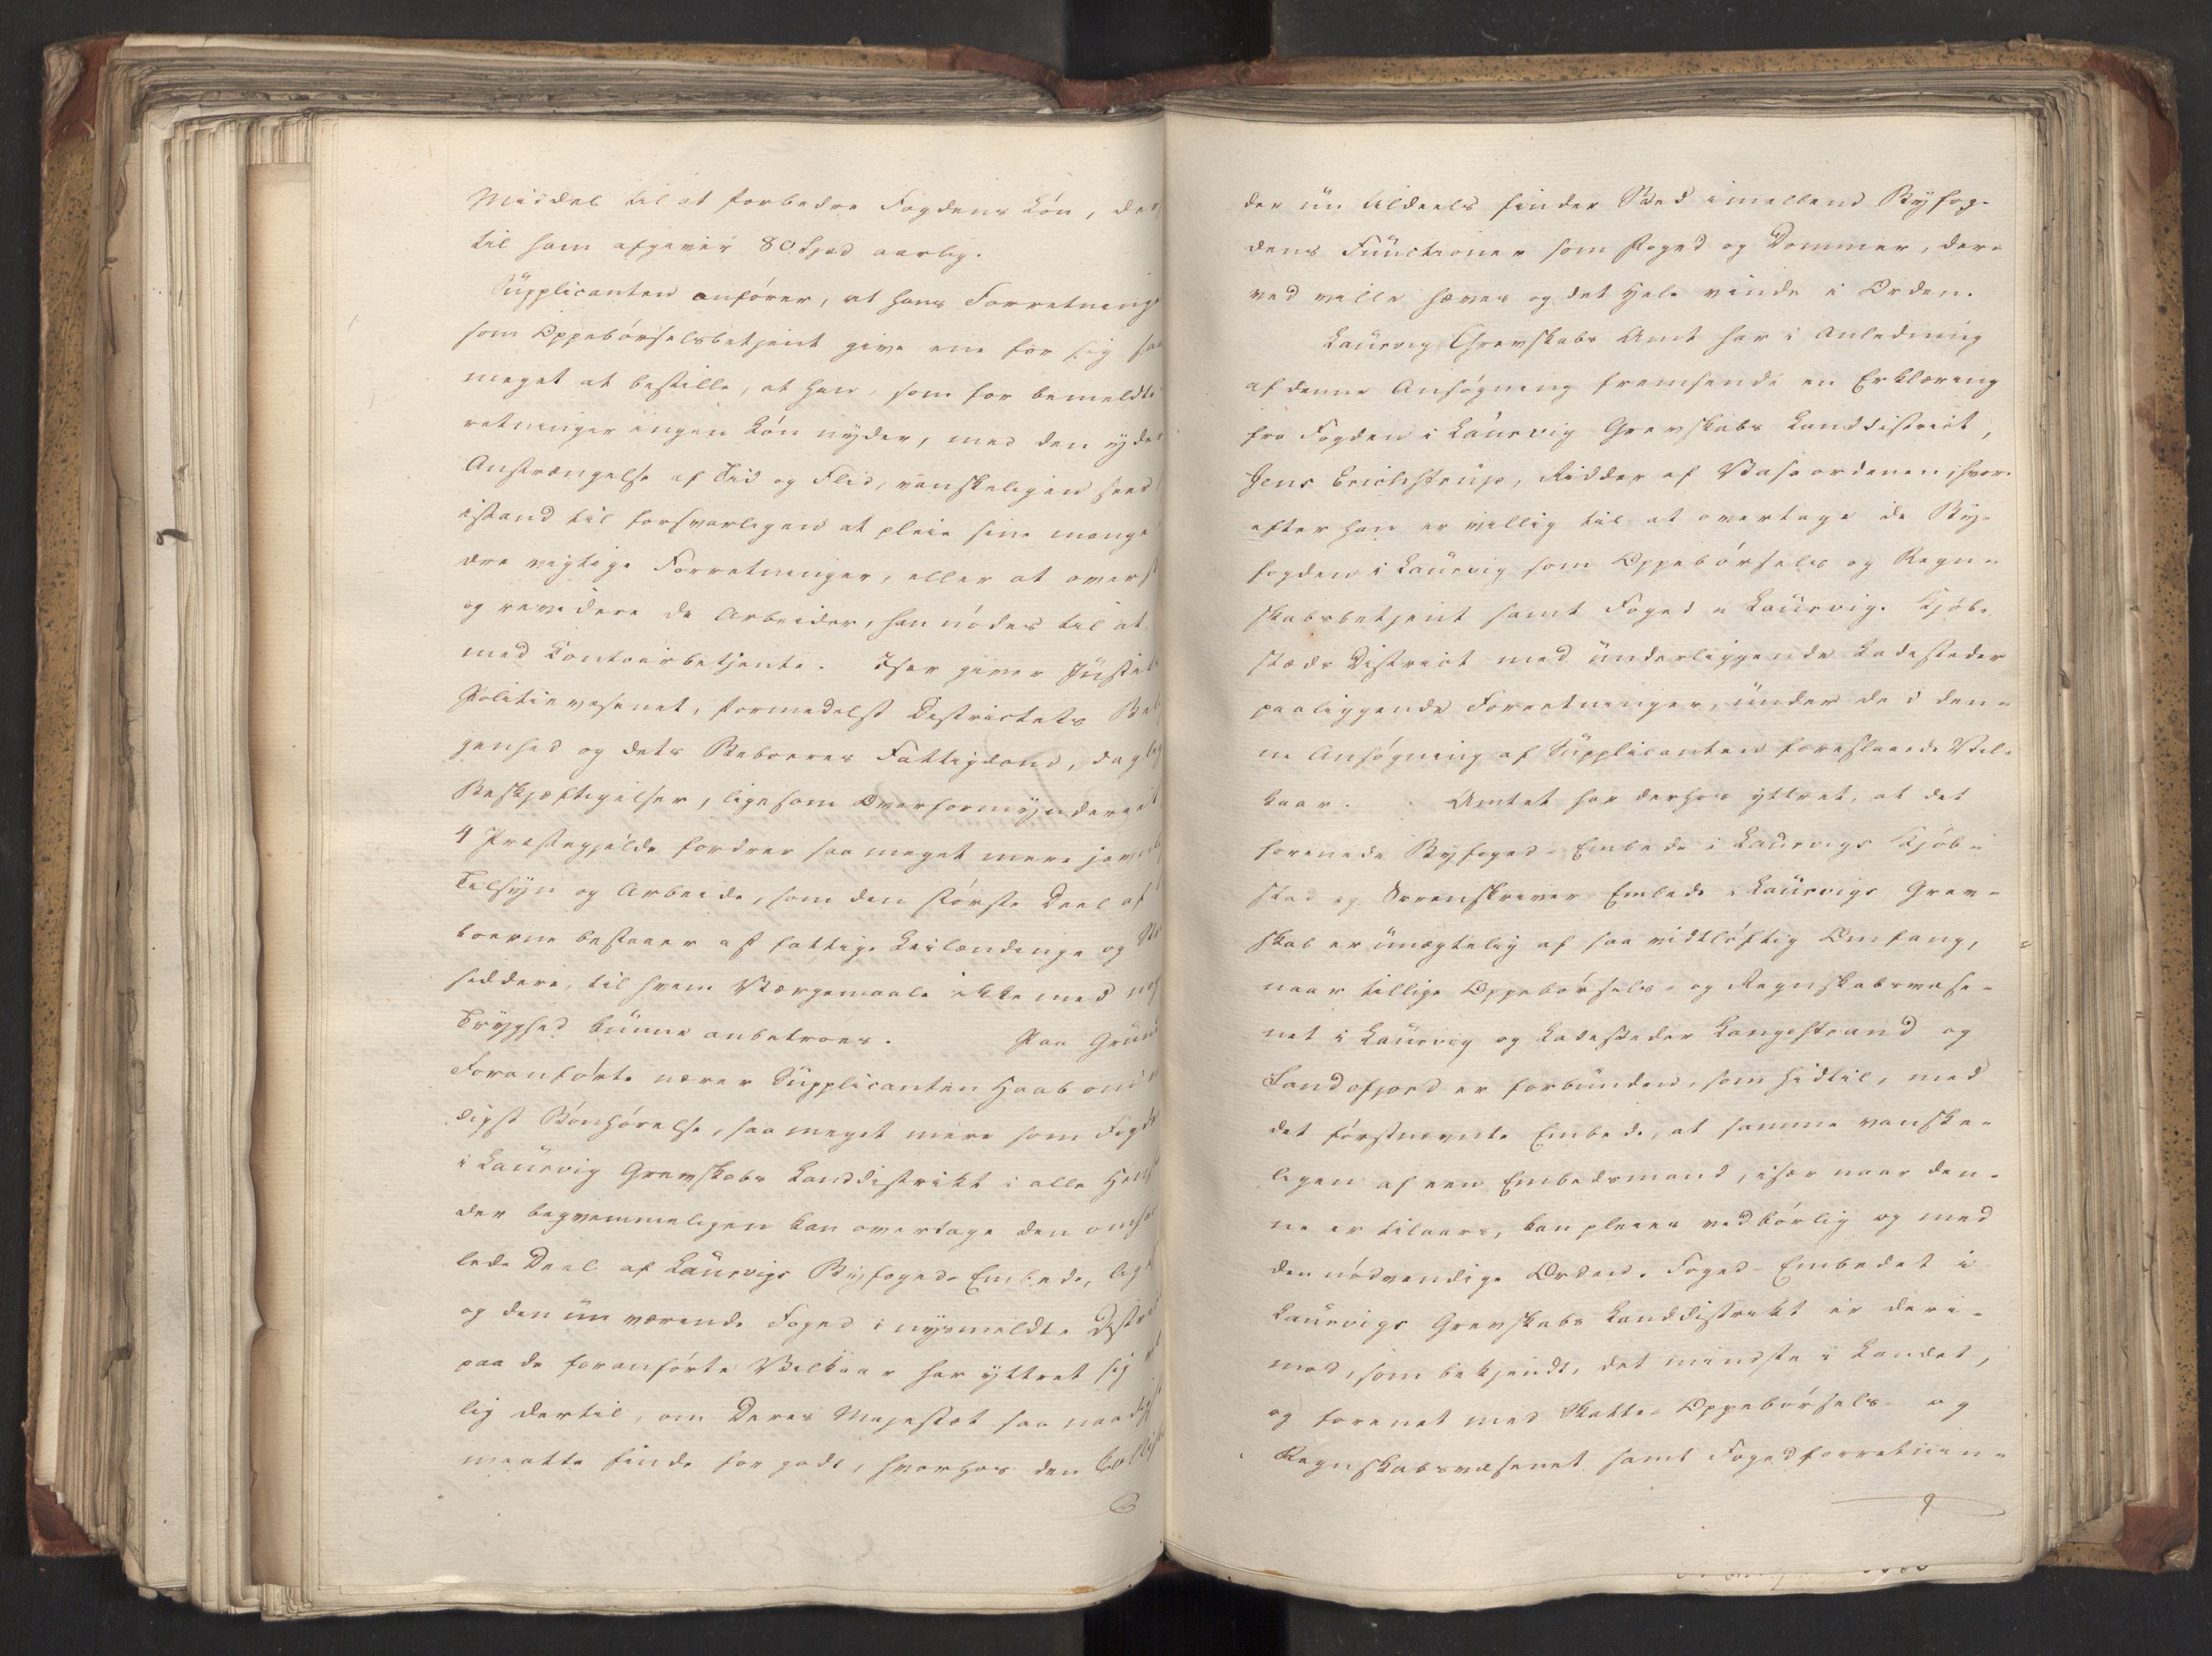 Middel til at forbedre Fogdens Løn, der
til ham afgiver 80 Spd aarlig.
Supplicanten anfører, at hans Forretninge
som Oppebørselsbetjent give ene for sig saa
meget at bestille, at han, som for bemeldte
retninger ingen Løn nyder, med den yder
Anstrængelse af Tid og Flid, vanskeligen seer
istand til forsvarligen at pleie sine mange
dre vigtige Forretninger, eller at overs
og revidere de Arbeider, han nødes til at
med Contoirbetjente. Især giver Justits
Politievæsenet, formedelst Districtets Bel
genhed og dets Beboeres Fattigdom, daglig
Beskjæftigelser, ligesom Overformynderiet
4 Præstegjelde fordrer saa meget mere jevnlig
Tilsyn og Arbeide, som den største Deel af
boerne bestaaer af fattige Leilændinge og
siddere, til hvem Værgemaale ikke med
Tryghed kunne anbetroes. Paa Grund
Foranførte nærer Supplicanten Haab om
digst Bønhørelse, saa meget mere som Fogde
i Laurvig Grevskabs Landdistrikt i alle Hens
der beqvemmeligen kan overtage den omha
lede Deel af Laurvigs Byfoged-Embede, lig
og den nu værende Foged i nysmeldte Distr
paa de foranførte Vilkaar har yttret sig
lig dertil, om Deres Majestæt saa naadigst
maatte finde for godt, hvorhos den Collis
der nu tildeels finder Sted imellem Byfog-
dens Functioner som Foged og Dommer, der-
ved ville hæves og det Hele vinde i Orden.
Laurvig Grevskabs Amt har i Anledning
af denne Ansøgning fremsendt en Erklæring
fra Fogden i Laurvig Grevskabs Landdistrict,
Jens Erichstrup, Ridder af Vasaordenen, hvor-
efter han er villig til at overtage de By-
fogden i Laurvig som Oppebørsels og Regn-
skabsbetjent samt Foged i Laurvig Kjøb-
stæds District med underliggende Ladesteder
paaliggende Forretninger, under de i den-
ne Ansøgning af Supplicanten foreslaaede Vil-
kaar. Amtet har derhos yttret, at det
forenede Byfoged-Embede i Laurvigs Kjøb-
stad og Sorenskriver Embede i Laurvigs Grev-
skab er unægtelig af saa vidtløftig Omfang,
naar tillige Oppebørsels- og Regnskabsvæse-
net i Laurvig og Ladesteder Langestrand og
Sandefjord er forbunden, som hidtil, med
det førstnævnte Embede, at samme vanske-
ligen af een Embedsmand, især naar den-
ne er tilaars, kan pleies vedbørlig og med
den nødvendige Orden. Foged-Embedet i
Laurvigs Grevskabs Landdistrikt er deri-
mod, som bekjendt, det mindste i Landet,
og forenet med Skatte-Oppebørsels- og
Regnskabsvæsenet samt Fogedforretnin-